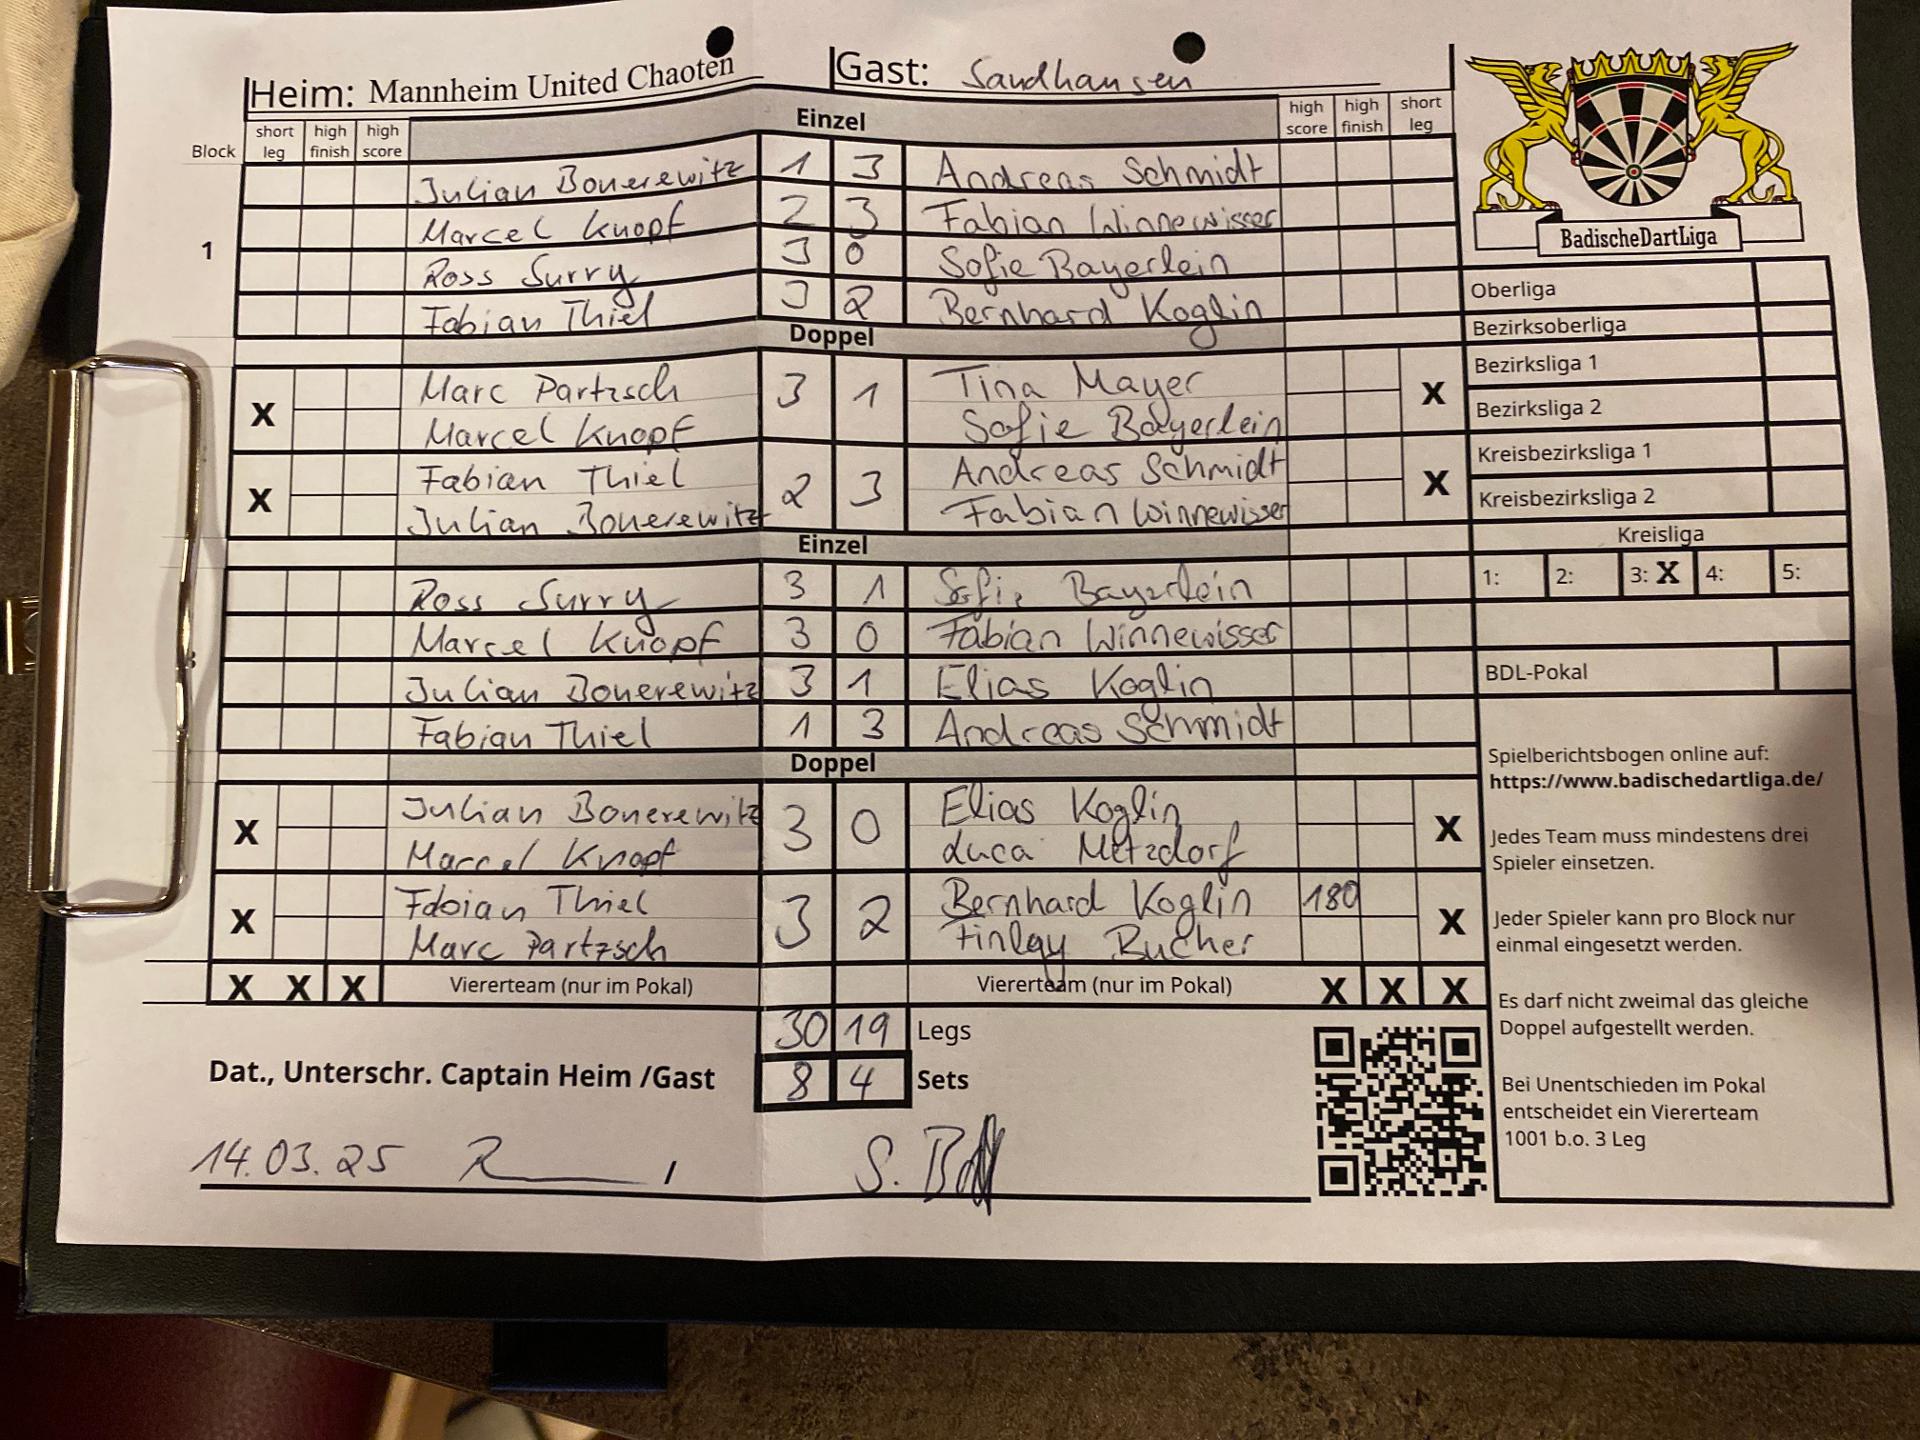 Heim: Mannheim United Chaoten Gast: Sandhausen
Block short leg high finish high score Einzel high score high finish short leg
Julian Bonerewitz 1 3 Andreas Schmidt
Marcel Knopf 2 3 Fabian Winnewisser
1
Ross Surry 3 0 Sofie Bayerlein
Fabian Thiel 3 2 Bernhard Koglin
Doppel
Marc Partzsch
X 3 1 X
Marcel Knopf
Tina Mayer
Sofie Bayerlein
Fabian Thiel
X 2 3 X
Julian Bonerewitz
Andreas Schmidt
Fabian Winnewisser
Einzel
Ross Surry 3 1 Sofie Bayerlein
Marcel Knopf 3 0 Fabian Winnewisser
Julian Bonerewitz 3 1 Elias Koglin
Fabian Thiel 1 3 Andreas Schmidt
Doppel
Julian Bonerewitz
X 3 0 X
Marcel Knopf
Elias Koglin
Luca Metzdorf
Fabian Thiel
X 3 2 X
Marc Partzsch
Bernhard Koglin 180
Finlay Bucher
X X X Viererteam (nur im Pokal) Viererteam (nur im Pokal) X X X
30 19 Legs
Dat., Unterschr. Captain Heim /Gast 8 4 Sets
14.03.25
S.
BadischeDartLiga
Oberliga
Bezirksoberliga
Bezirksliga 1
Bezirksliga 2
Kreisbezirksliga 1
Kreisbezirksliga 2
Kreisliga
1: 2: 3: X 4: 5:
BDL-Pokal
Spielberichtsbogen online auf:
https://www.badischedartliga.de/
Jedes Team muss mindestens drei
Spieler einsetzen.
Jeder Spieler kann pro Block nur
einmal eingesetzt werden.
Es darf nicht zweimal das gleiche
Doppel aufgestellt werden.
Bei Unentschieden im Pokal
entscheidet ein Viererteam
1001 b.o. 3 Leg